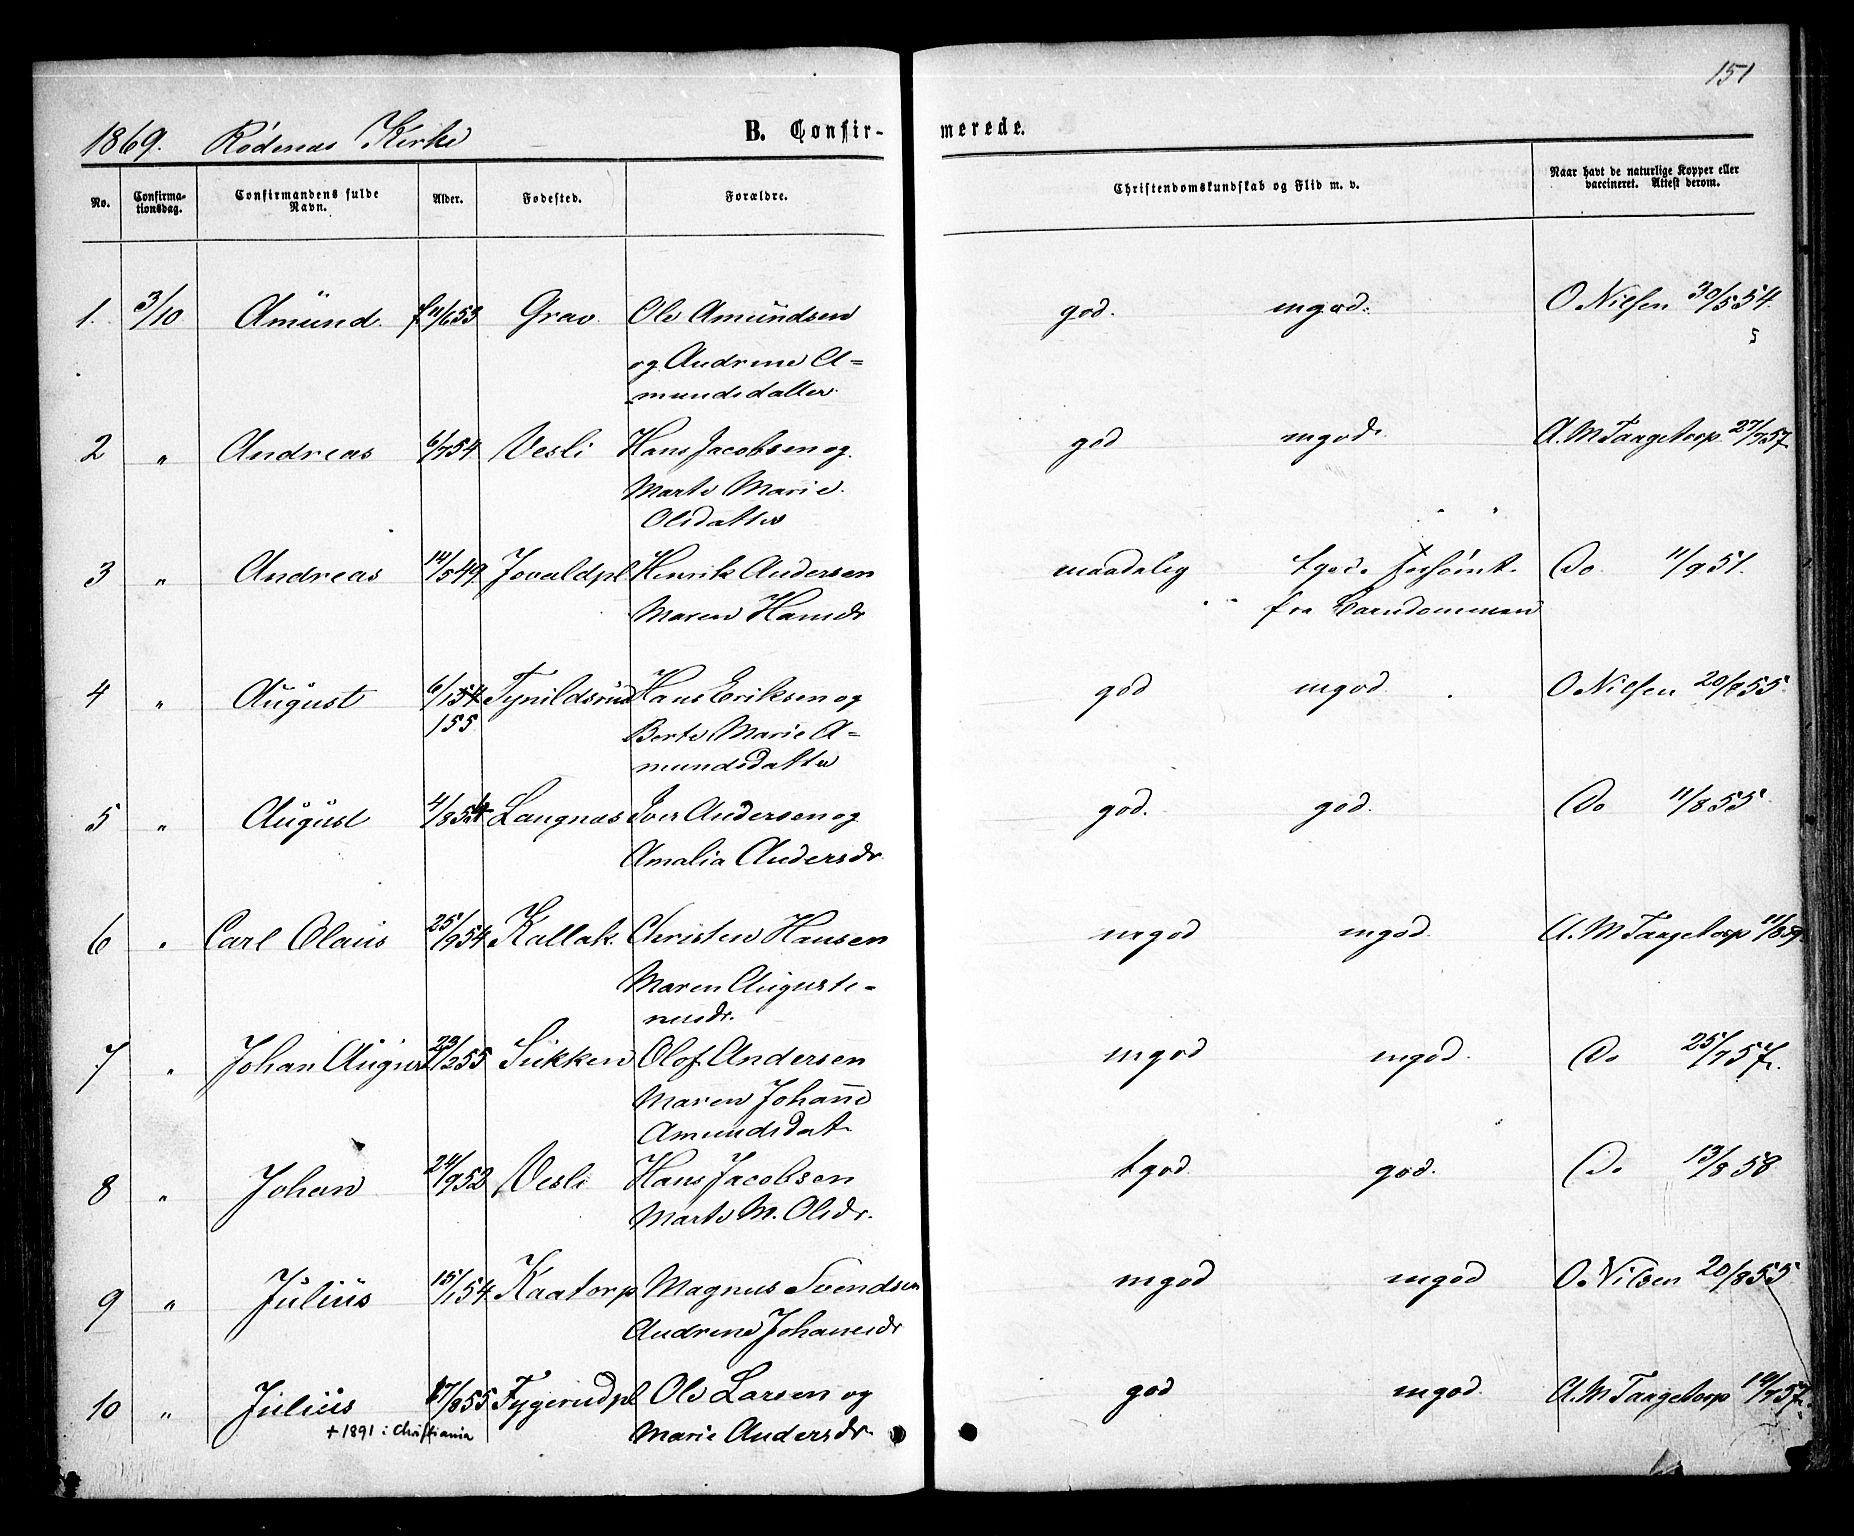 151
1869. Rödenæs Kirke B. Confirmerede.
No. Confirmationsdag. Confirmandens fulde Navn. Alder. Fødested. Forældre. Christendomskundskab og Flid m. v. Naar havt de naturlige Kopper eller vaccineret. Attest derom.
1. 3/10 Amund. f 11/6 53 Grav Ole Amundsen god. mgod. O Nilsen 30/5 54.
og Andrine A=
mundsdatter
2 " Andreas 6/7 54 Vesli Hans Jacobsen og god mgod. A. M Taagetorp 27/7 57
Marte Marie
Olsdatter
3 " Andreas 14/5 49 Jovaldpl Henrik Andersen maadelig tgod. Forsömt Do 11/9 51.
Maren Hansdr fra Barndommen
4 " August 6/1 54 Tynildsrud Hans Eriksen og god mgod O Nilsen 20/8 55.
155 Berte Marie A=
mundsdatter
5 " August 4/8 54 Langnæs Iver Andersen og god. god. Do 11/8 55
Amalia Andersdr.
6 " Carl Olaus 25/9 54 Kallak. Christen Hansen mgod mgod. A. M Taagetorp 11/8 59
Maren Auguste=
nusdr.
7 " Johan August 23/2 55 Sukken Olof Andersen mgod mgod. Do 25/7 57.
Maren Johanne
Amundsdat.
8 " Johan 24/9 52 Vesli Hans Jacobsen tgod. god. Do 13/8 58
Marte M. Olsdr.
9 " Julius 15/1 54 Kaatorp Magnus Svendsen mgod mgod O. Nilsen 20/8 55
Andrine Johannesdr
10 " Julius 17/8 55 Tygerudpl Ole Larsen og god mgod. A. M Taagetorp 14/7 57.
+ 1891 i Christiania Marie Andersdr.